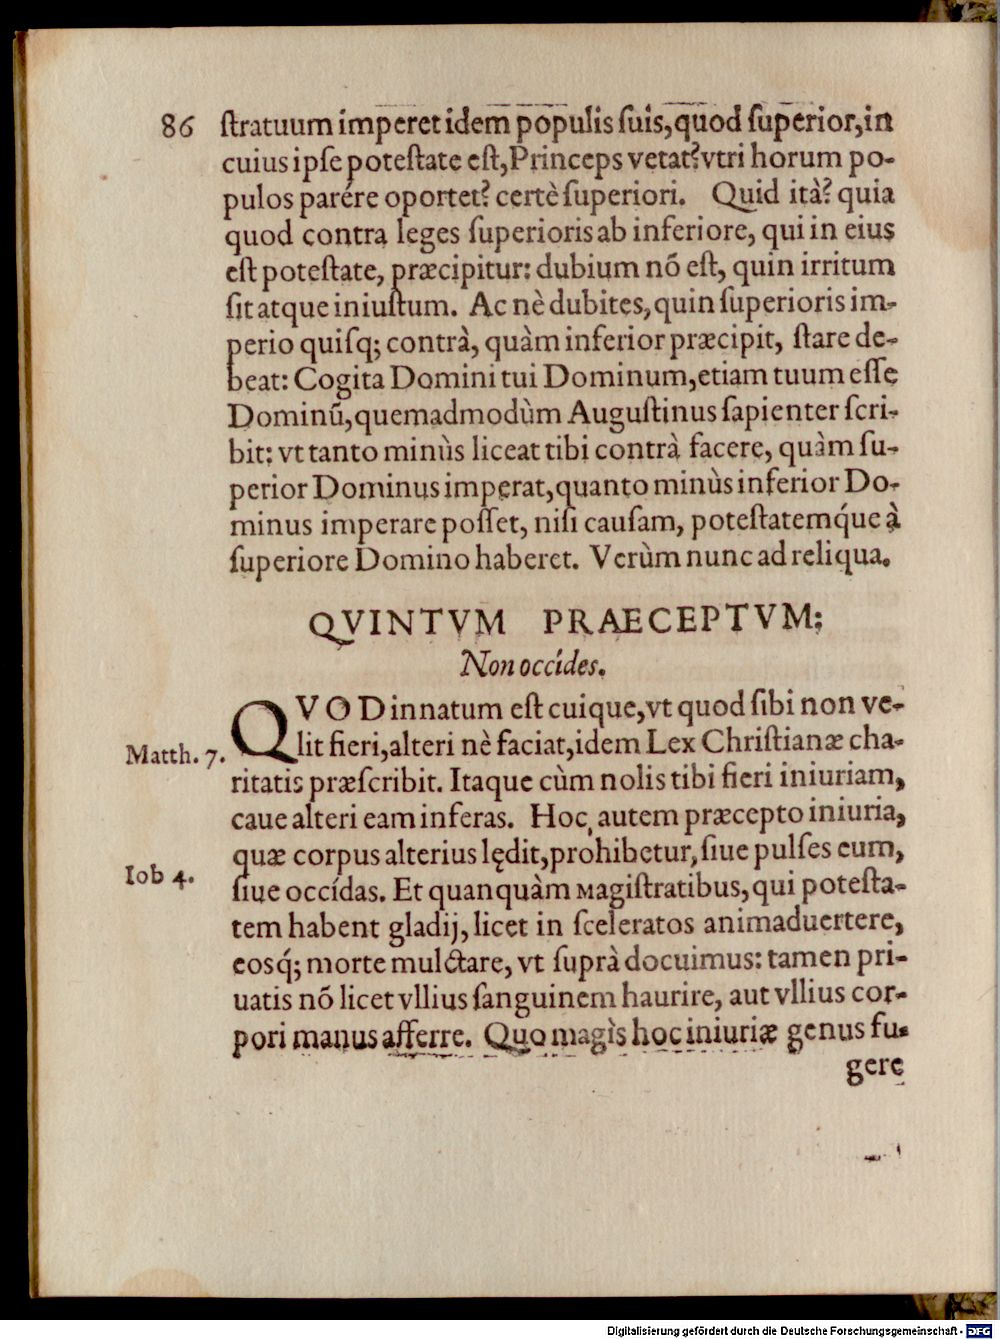 86 ſtratuum imperet idem populis ſuis, quod ſuperior, in
cuius ipſe poteſtate eſt, Princeps vetat? vtri horum po-
pulos parére oportet? certè ſuperiori. Quid ità? quia
quod contra leges ſuperioris ab inferiore, qui in eius
eſt poteſtate, præcipitur: dubium nõ eſt, quin irritum
ſit atque iniuſtum. Ac nè dubites, quin ſuperioris im-
perio quiſq; contrà, quàm inferior præcipit, ſtare de-
beat: Cogita Domini tui Dominum, etiam tuum eſſe
Dominũ, quemadmodùm Auguſtinus ſapienter ſcri-
bit: vt tanto minùs liceat tibi contrà facere, quàm ſu-
perior Dominus imperat, quanto minùs inferior Do-
minus imperare poſſet, niſi cauſam, poteſtatemq́ue à
ſuperiore Domino haberet. Verùm nunc ad reliqua.
QVINTVM PRAECEPTVM:
Non occídes.
QVOD innatum eſt cuique, vt quod ſibi non ve-
Matth. 7. lit fieri, alteri nè faciat, idem Lex Chriſtianæ cha-
ritatis præſcribit. Itaque cùm nolis tibi fieri iniuriam,
caue alteri eam inferas. Hoc autem præcepto iniuria,
quæ corpus alterius lędit, prohibetur, ſiue pulſes eum,
Iob 4. ſiue occídas. Et quanquàm Magiſtratibus, qui poteſta-
tem habent gladij, licet in ſceleratos animaduertere,
eosq́; morte mulctare, vt ſuprà docuimus: tamen pri-
uatis nõ licet vllius ſanguinem haurire, aut vllius cor-
pori manus afferre. Quo magìs hoc iniuriæ genus fu-
gere
Digitalisierung gefördert durch die Deutsche Forschungsgemeinschaft - DFG